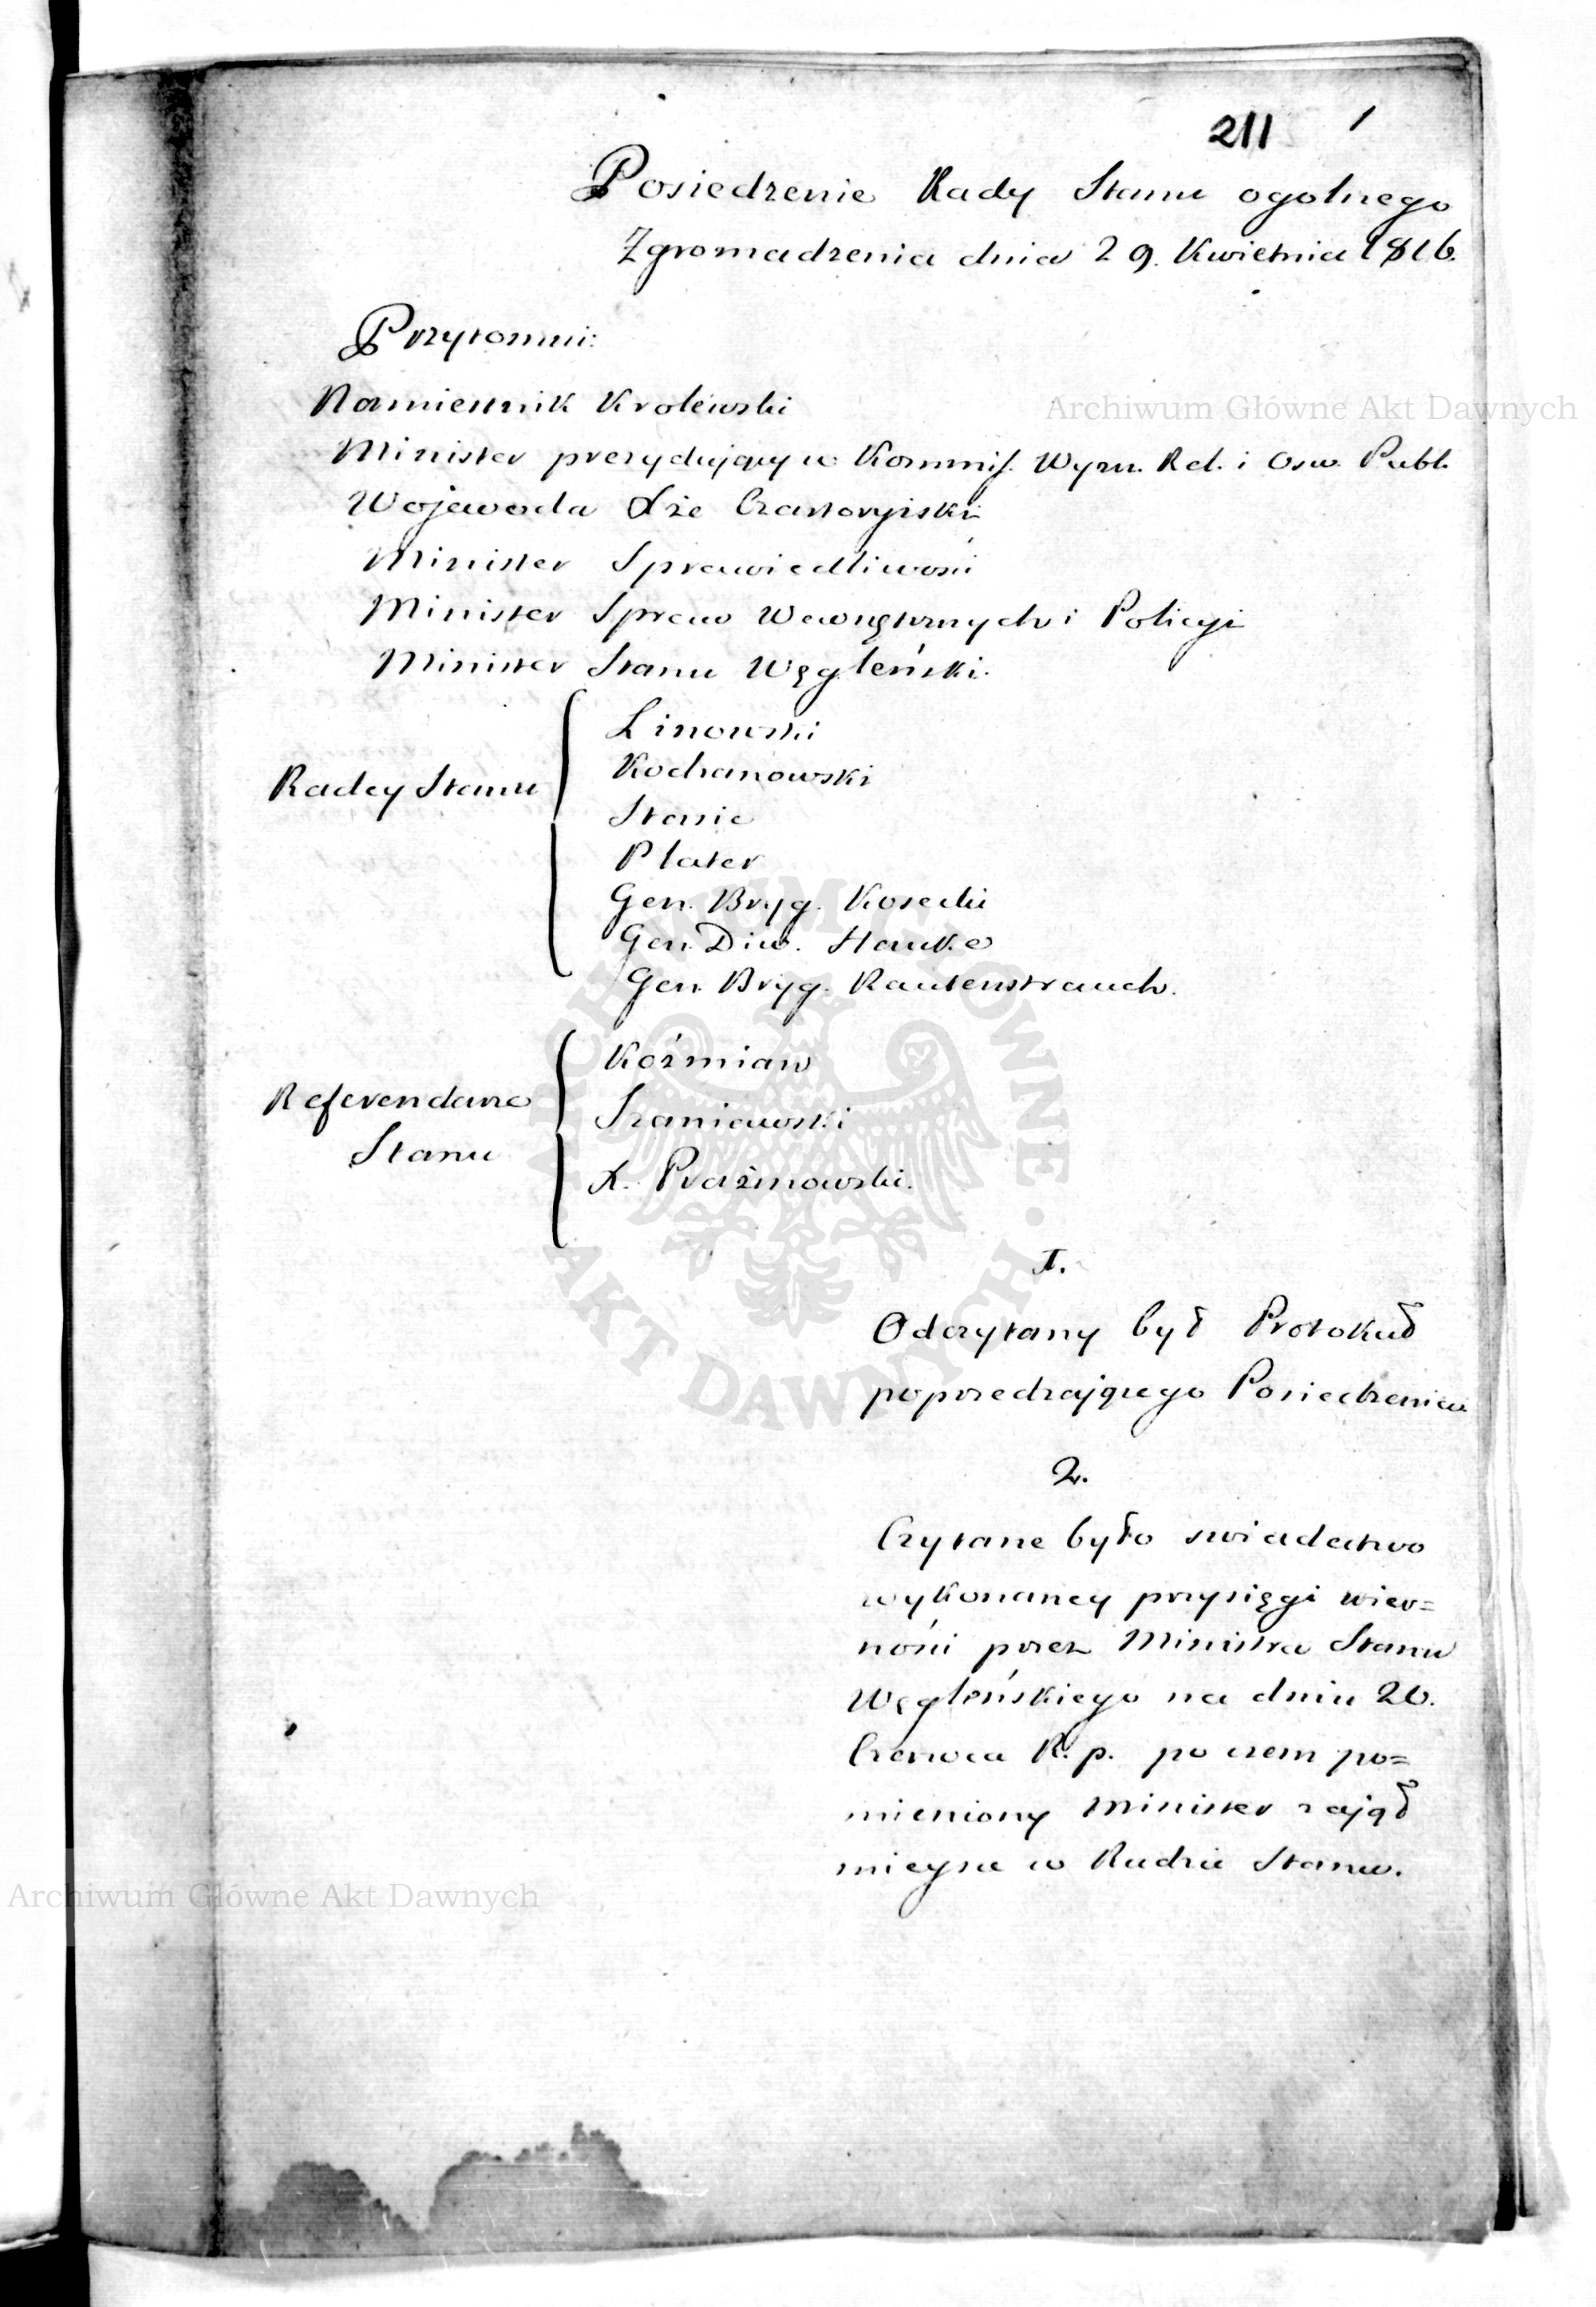 211 1
Posiedzenie Rady Stanu ogolnego
Zgromadzenia dnia 29. Kwietnia 1816.
Przytomni:
Namiestnik Krolewski
Archiwum Główne Akt Dawnych
Minister prezydujący w Kommiss. Wyzn. Rel. i Osw. Publ.
Wojewoda Xże Czartoryiski
Minister Sprawiedliwości
Minister Spraw Wewnętrznych i Policyi
Minister Stanu Węgleński.
Radcy Stanu
Linowski
Kochanowski
Stasic
Plater
Gen. Bryg. Kosecki
Gen. Diw. Hauke
Gen. Bryg. Rautenstrauch.
Referendarze
Stanu
Koźmian
Szaniawski
X. Prażmowski.
ARCHIWUM GŁÓWNE AKT DAWNYCH
1.
Odczytany był Protokuł
poprzedzającego Posiedzenia
2.
Czytane było swiadectwo
wykonaney przysięgi wier=
ności przez Ministra Stanu
Węgleńskiego na dniu 20.
Czerwca R. p. po czem po=
mieniony Minister zajął
mieysce w Radzie Stanu.
Archiwum Główne Akt Dawnych